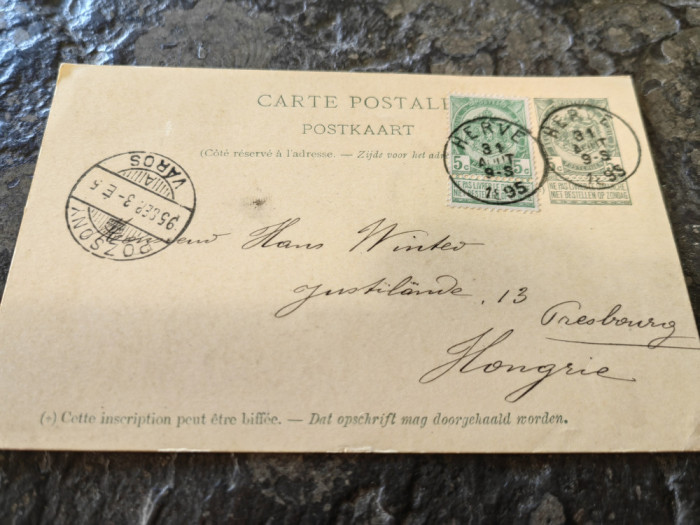 CARTE POSTALE
POSTKAART
(Côté réservé à l'adresse. — Zijde voor het
5c 5c
NE PAS LIVRER
HERVE
31
AOUT
9-S
1895
HERVE
31
9-S
1895
NIET BESTELLEN OP ZONDAG
POZSONY
95 SEP 3
VÁROS
Hans Winter
13
Presbourg
Hongrie
(+) Cette inscription peut être biffée. — Dat opschrift mag doorgehaald worden.